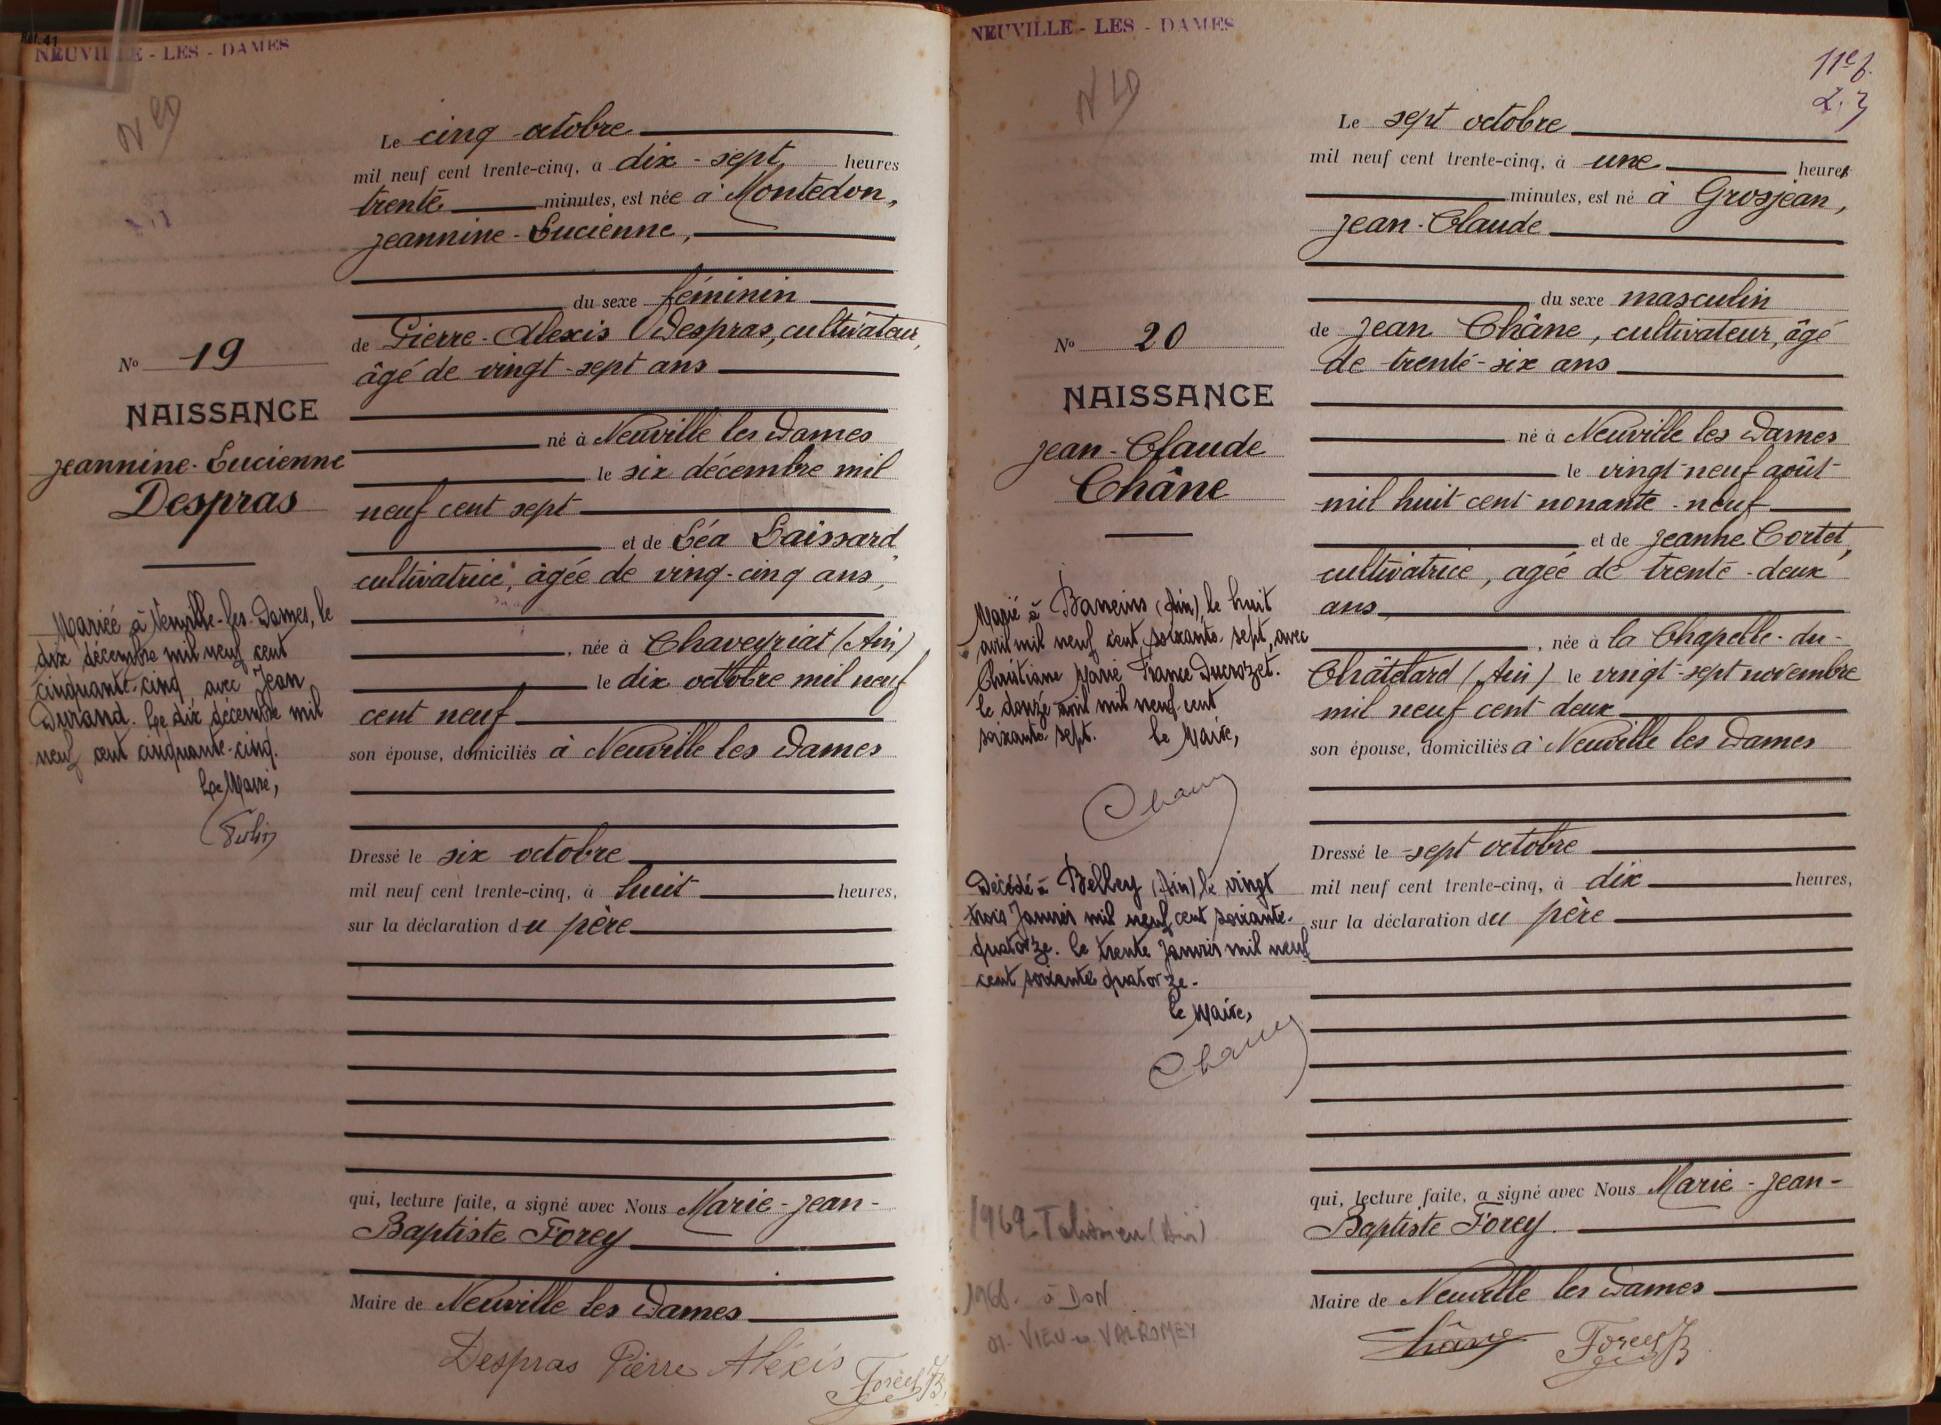 NEUVILLE - LES - DAMES
Le cinq octobre
mil neuf cent trente-cinq, a dix-sept heures
trente minutes, est née à Montedon,
Jeannine-Lucienne,
du sexe féminin
de Pierre-Alexis Despras, cultivateur,
âgé de vingt-sept ans
né à Neuville les Dames
le six décembre mil
neuf cent sept
et de Léa Laissard,
cultivatrice, âgée de ving-cinq ans,
, née à Chaveyriat (Ain)
le dix octobre mil neuf
cent neuf
son épouse, domiciliés à Neuville les Dames
Dressé le six octobre
mil neuf cent trente-cinq, à huit heures,
sur la déclaration du père
qui, lecture faite, a signé avec Nous Marie-Jean-
Baptiste Forey
Maire de Neuville les Dames
Despras Pierre Aléxis Forey JB
No 19
NAISSANCE
Jeannine-Lucienne
Despras
Mariée à Neuville-les-Dames, le
dix décembre mil neuf cent
cinquante-cinq avec Jean
Durand. Le dix décembre mil
neuf cent cinquante-cinq.
Le Maire,
NEUVILLE - LES - DAMES
11e f.
Le sept octobre
mil neuf cent trente-cinq, à une heure
minutes, est né à Grosjean,
Jean-Claude
du sexe masculin
de Jean Châne, cultivateur, âgé
de trente-six ans
né à Neuville les Dames
le vingt-neuf août
mil huit cent nonante-neuf
et de Jeanne Cortet,
cultivatrice, agée de trente-deux
ans
, née à la Chapelle-du-
Châtelard (Ain) le vingt-sept novembre
mil neuf cent deux
son épouse, domiciliés à Neuville les Dames
Dressé le sept octobre
mil neuf cent trente-cinq, à dix heures,
sur la déclaration du père
qui, lecture faite, a signé avec Nous Marie-Jean-
Baptiste Forey.
Maire de Neuville les Dames
Châne Forey JB
No 20
NAISSANCE
Jean-Claude
Châne
Marié à Baneins (Ain), le huit
avril mil neuf cent soixante-sept, avec
Christiane Marie France Ducrozet.
Le douze avril mil neuf cent
soixante sept. Le Maire,
Décédé à Belley (Ain) le vingt
trois Janvier mil neuf cent soixante-
quatorze. Le trente Janvier mil neuf
cent soixante quatorze.
Le Maire,
1969 - Talissieu (Ain)
1968. à DON
01. VIEU en VALROMEY